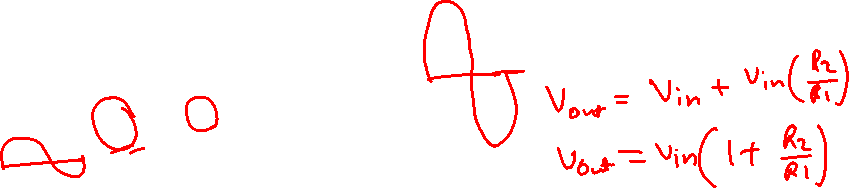 Vout = Vin + Vin(R2/R1)
Vout = Vin(1 + R2/R1)